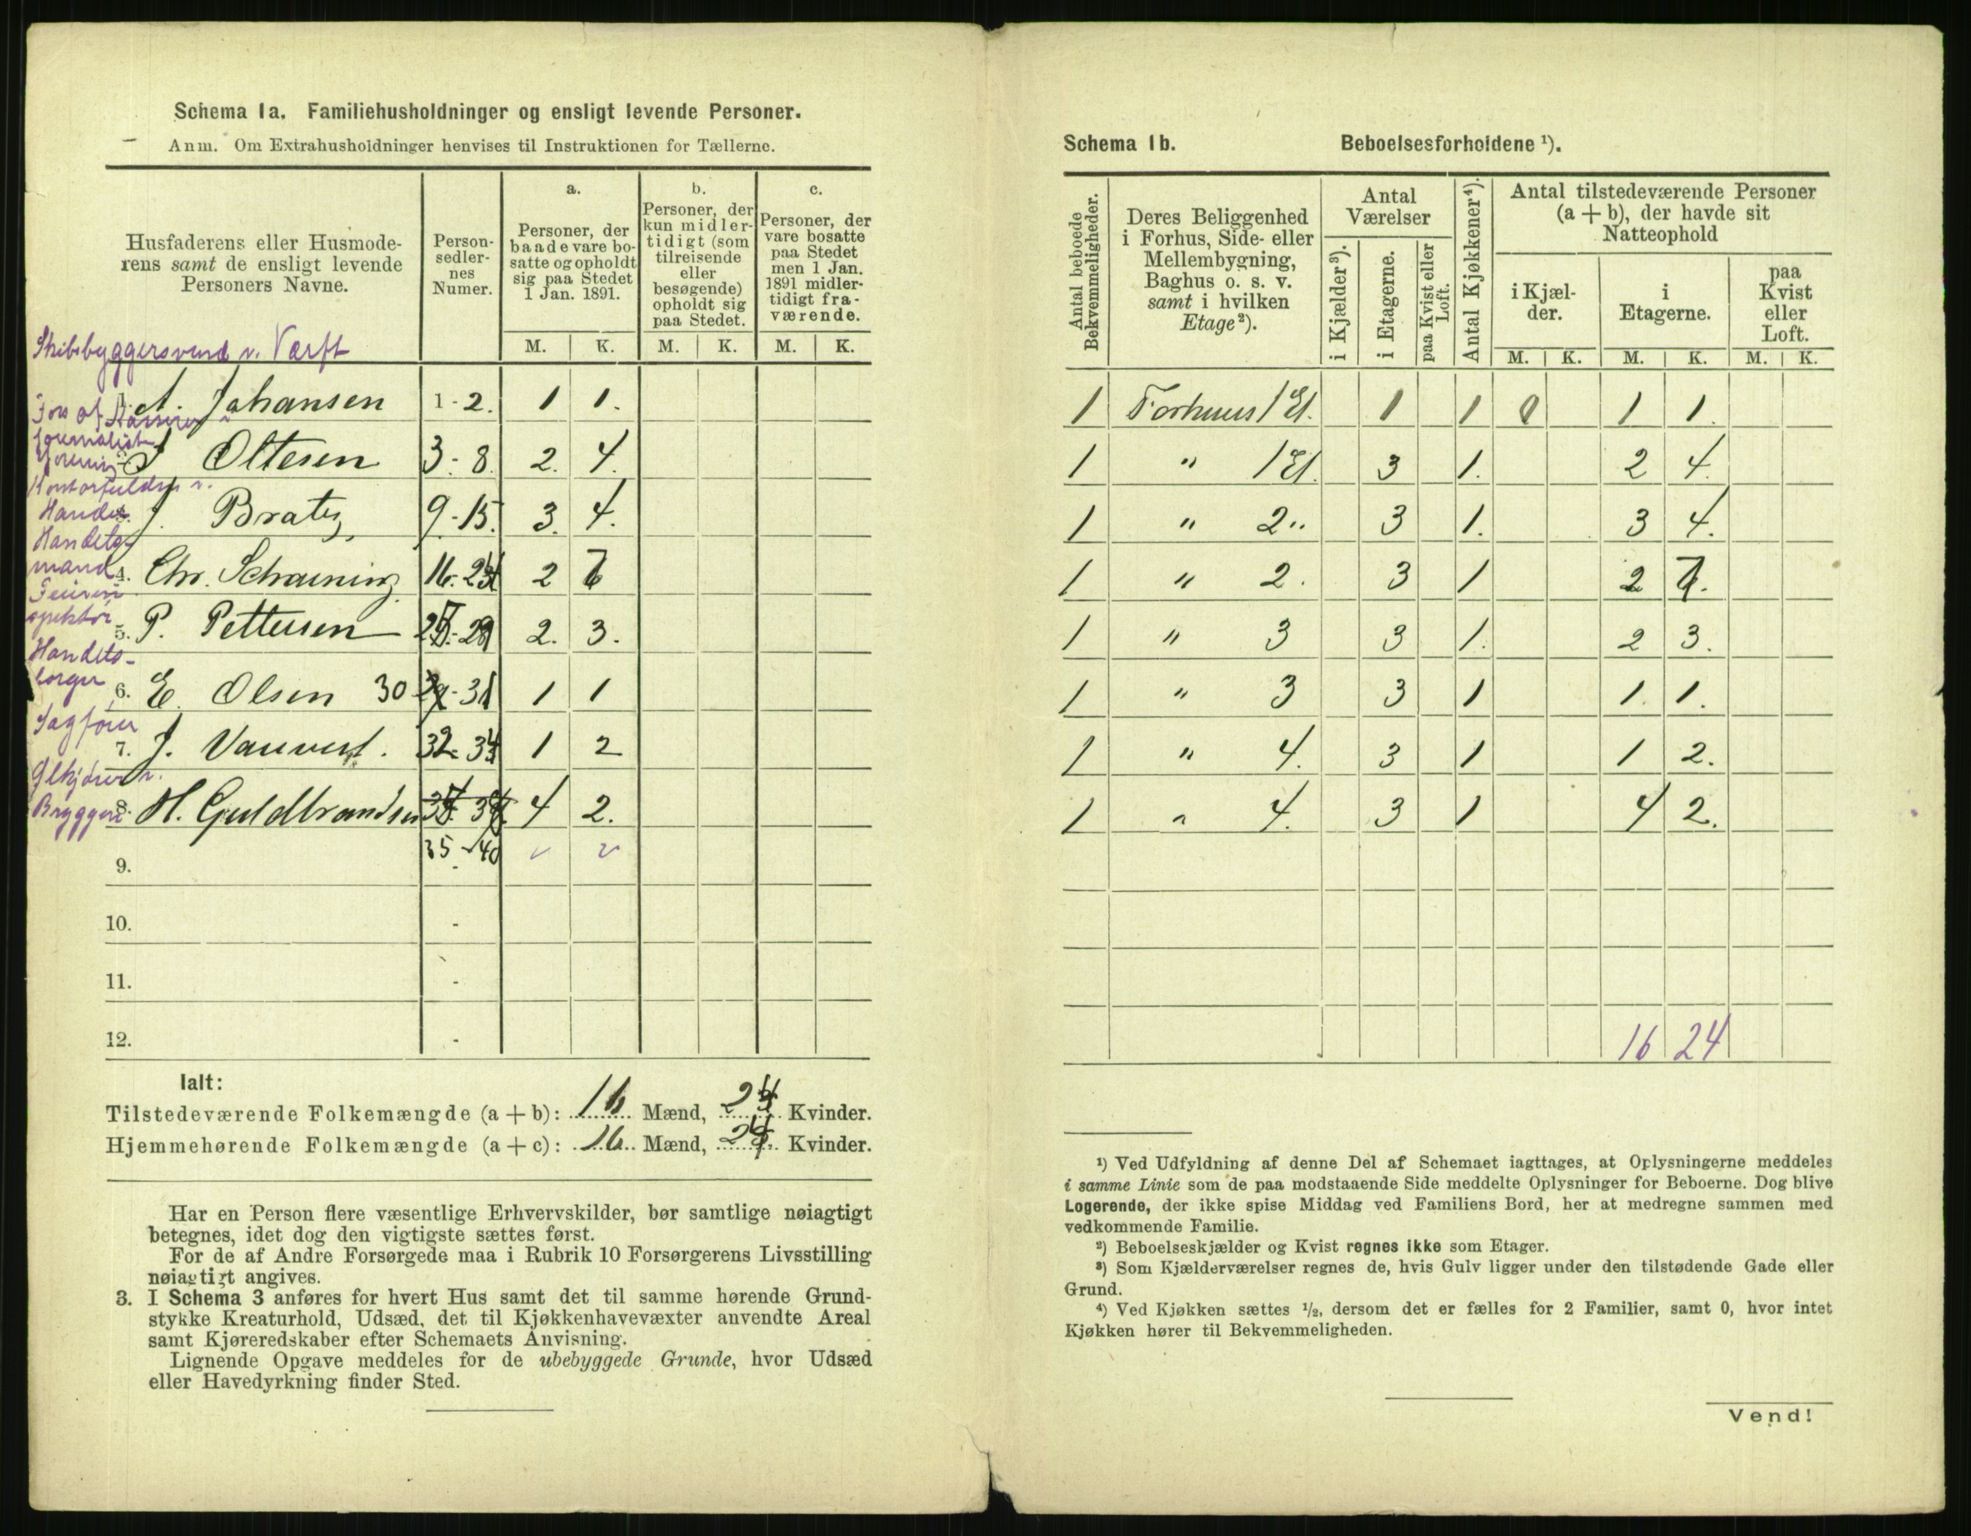 Schema 1a. Familiehusholdninger og ensligt levende Personer.
Anm. Om Extrahusholdninger henvises til Instruktionen for Tællerne.
Husfaderens eller Husmoderens samt de ensligt levende Personers Navne.
Person-sedlernes Numer.
a. Personer, der baade vare bosatte og opholdt sig paa Stedet 1 Jan. 1891.
b. Personer, der kun midlertidigt (som tilreisende eller besøgende) opholdt sig paa Stedet.
c. Personer, der vare bosatte paa Stedet men 1 Jan. 1891 midlertidigt fraværende.
M. K. M. K. M. K.
Skibsbyggersvend v. Værft
A. Johansen 1-2. 1 1.
Journalist
Oltesen 3-8. 2. 4.
J. Bratz 9-15. 3. 4.
Handelsmand
4. Chr. Schauning 16-24 2 7
5. P. Pettersen 25-29 2. 3.
Handelsborger
6. E. Olsen 30-31 1 1
Sagfører
7. J. 32-34 1 2
Ølkjører v. Bryggeri
8. H. Guldbrandsen 4 2.
9. 35-40
10. -
11. -
12. -
Ialt:
Tilstedeværende Folkemængde (a + b): 16 Mænd, 24 Kvinder.
Hjemmehørende Folkemængde (a + c): 16 Mænd, 24 Kvinder.
Har en Person flere væsentlige Erhvervskilder, bør samtlige nøiagtigt
betegnes, idet dog den vigtigste sættes først.
For de af Andre Forsørgede maa i Rubrik 10 Forsørgerens Livsstilling
nøiagtigt angives.
3. I Schema 3 anføres for hvert Hus samt det til samme hørende Grund-
stykke Kreaturhold, Udsæd, det til Kjøkkenhavevæxter anvendte Areal
samt Kjøreredskaber efter Schemaets Anvisning.
Lignende Opgave meddeles for de ubebyggede Grunde, hvor Udsæd
eller Havedyrkning finder Sted.
Schema 1b. Beboelsesforholdene ¹).
Antal beboede Bekvemmeligheder.
Deres Beliggenhed i Forhus, Side- eller Mellembygning, Baghus o. s. v. samt i hvilken Etage²).
Antal Værelser
i Kjælder³). i Etagerne. paa Kvist eller Loft.
Antal Kjøkkener⁴).
Antal tilstedeværende Personer (a + b), der havde sit Natteophold
i Kjælder. i Etagerne. paa Kvist eller Loft.
M. K. M. K. M. K.
1 Forhuus 1 Et. 1 1 0 1 1.
1 " 1 Et. 3 1. 2 4.
1 " 2 " 3 1. 3 4.
1 " 2. 3 1 2 7.
1 " 3 3 1. 2 3.
1 " 3 3 1 1. 1.
1 " 4. 3 1 1 2.
1 " 4. 3 1 4 2.
16 24
¹) Ved Udfyldning af denne Del af Schemaet iagttages, at Oplysningerne meddeles
i samme Linie som de paa modstaaende Side meddelte Oplysninger for Beboerne. Dog blive
Logerende, der ikke spise Middag ved Familiens Bord, her at medregne sammen med
vedkommende Familie.
²) Beboelseskjælder og Kvist regnes ikke som Etager.
³) Som Kjælderværelser regnes de, hvis Gulv ligger under den tilstødende Gade eller
Grund.
⁴) Ved Kjøkken sættes ½, dersom det er fælles for 2 Familier, samt 0, hvor intet
Kjøkken hører til Bekvemmeligheden.
Vend!